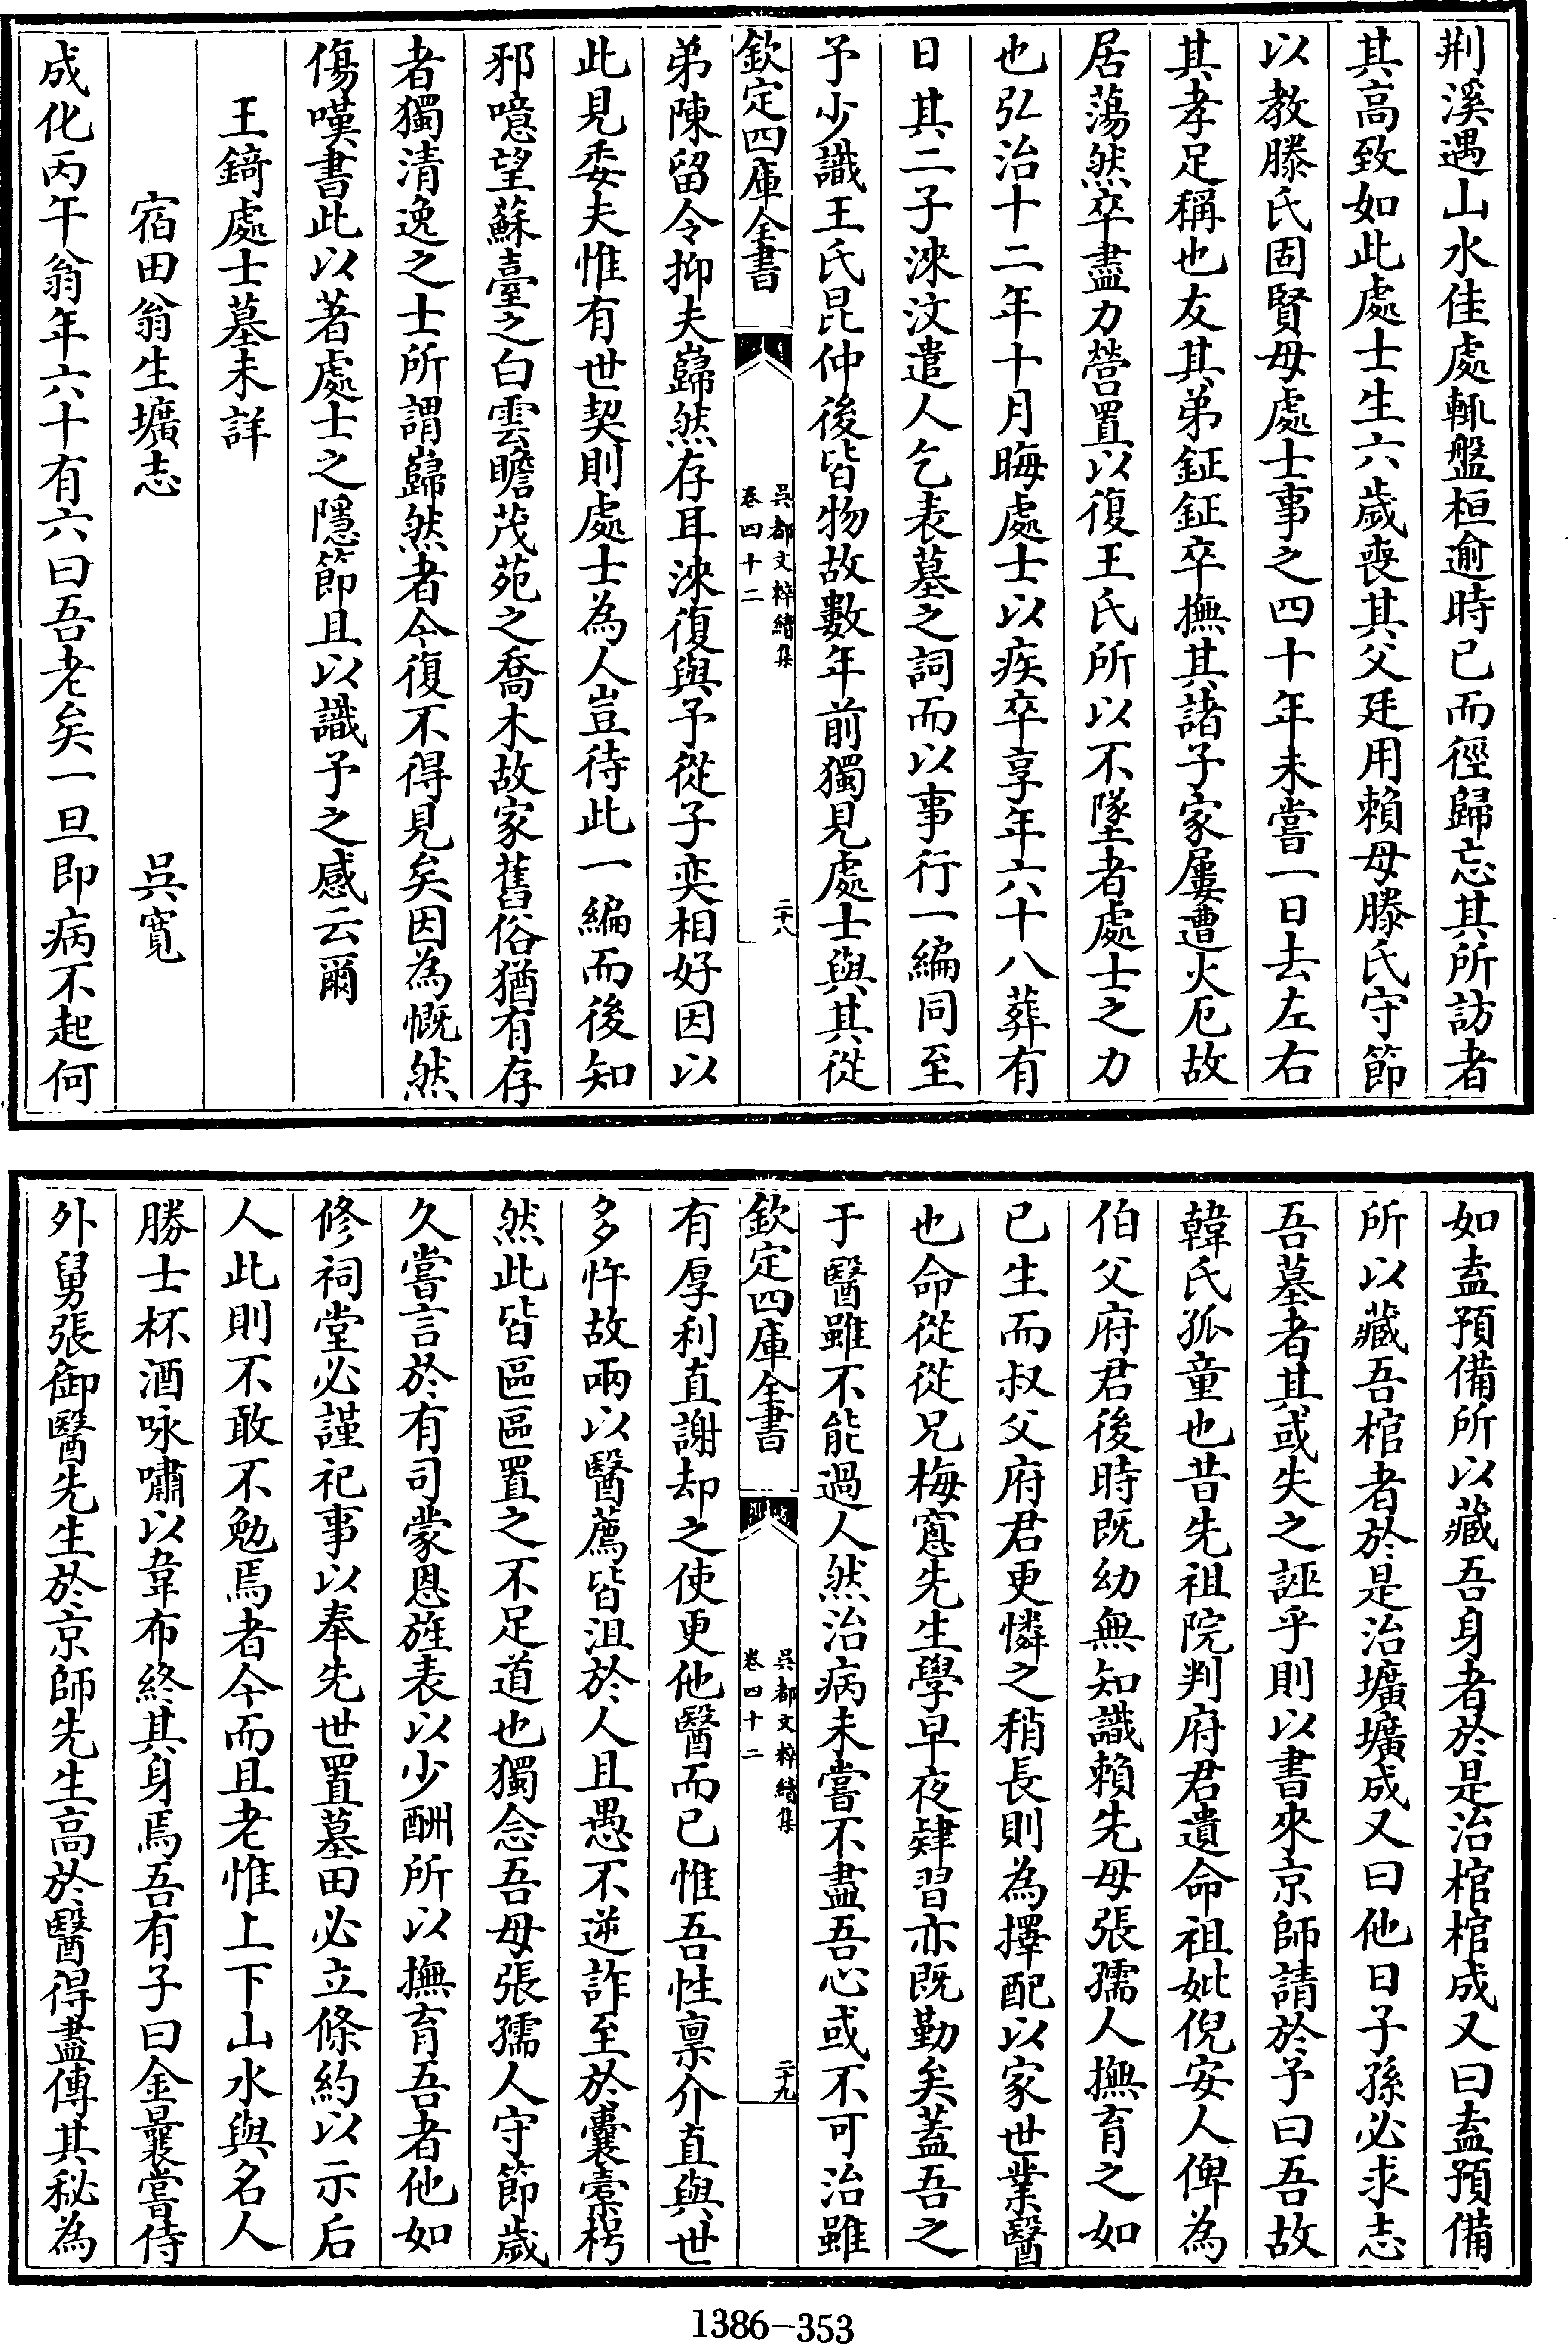 荆溪遇山水佳處輒盤桓逾時已而徑歸忘其所訪者
其高致如此處士生六歲喪其父廷用賴母滕氏守節
以教滕氏固賢母處士事之四十年未嘗一日去左右
其孝足稱也友其弟鉦鉦卒撫其諸子家屢遭火厄故
居蕩然卒盡力營置以復王氏所以不墜者處士之力
也弘治十二年十月晦處士以疾卒享年六十八葬有
日其二子淶汶遣人乞表墓之詞而以事行一編同至
予少識王氏昆仲後皆物故數年前獨見處士與其從
欽定四庫全書
吳都文粹續集
卷四十二
二十八
弟陳留令抑夫巋然存耳淶復與予從子奕相好因以
此見委夫惟有世契則處士為人豈待此一編而後知
邪噫望蘇臺之白雲瞻茂苑之喬木故家舊俗猶有存
者獨清逸之士所謂巋然者今復不得見矣因為慨然
傷嘆書此以著處士之隱節且以識予之感云爾
王錡處士墓未詳
宿田翁生壙志 吳寬
成化丙午翁年六十有六曰吾老矣一旦即病不起何
如盍預備所以藏吾身者於是治棺棺成又曰盍預備
所以藏吾棺者於是治壙壙成又曰他日子孫必求志
吾墓者其或失之誣乎則以書來京師請於予曰吾故
韓氏孤童也昔先祖院判府君遺命祖妣倪安人俾為
伯父府君後時既幼無知識賴先母張孺人撫育之如
已生而叔父府君更憐之稍長則為擇配以家世業醫
也命從從兄梅窻先生學早夜肄習亦既勤矣蓋吾之
于醫雖不能過人然治病未嘗不盡吾心或不可治雖
欽定四庫全書
吳都文粹續集
卷四十二
二十九
有厚利直謝却之使更他醫而已惟吾性稟介直與世
多忤故兩以醫薦皆沮於人且愚不逆詐至於囊橐枵
然此皆區區置之不足道也獨念吾母張孺人守節歲
久嘗言於有司蒙恩旌表以少酬所以撫育吾者他如
修祠堂必謹祀事以奉先世置墓田必立條約以示后
人此則不敢不勉焉者今而且老惟上下山水與名人
勝士杯酒咏嘯以韋布終其身焉吾有子曰金曩嘗侍
外舅張御醫先生於京師先生高於醫得盡傳其秘為
1386-353